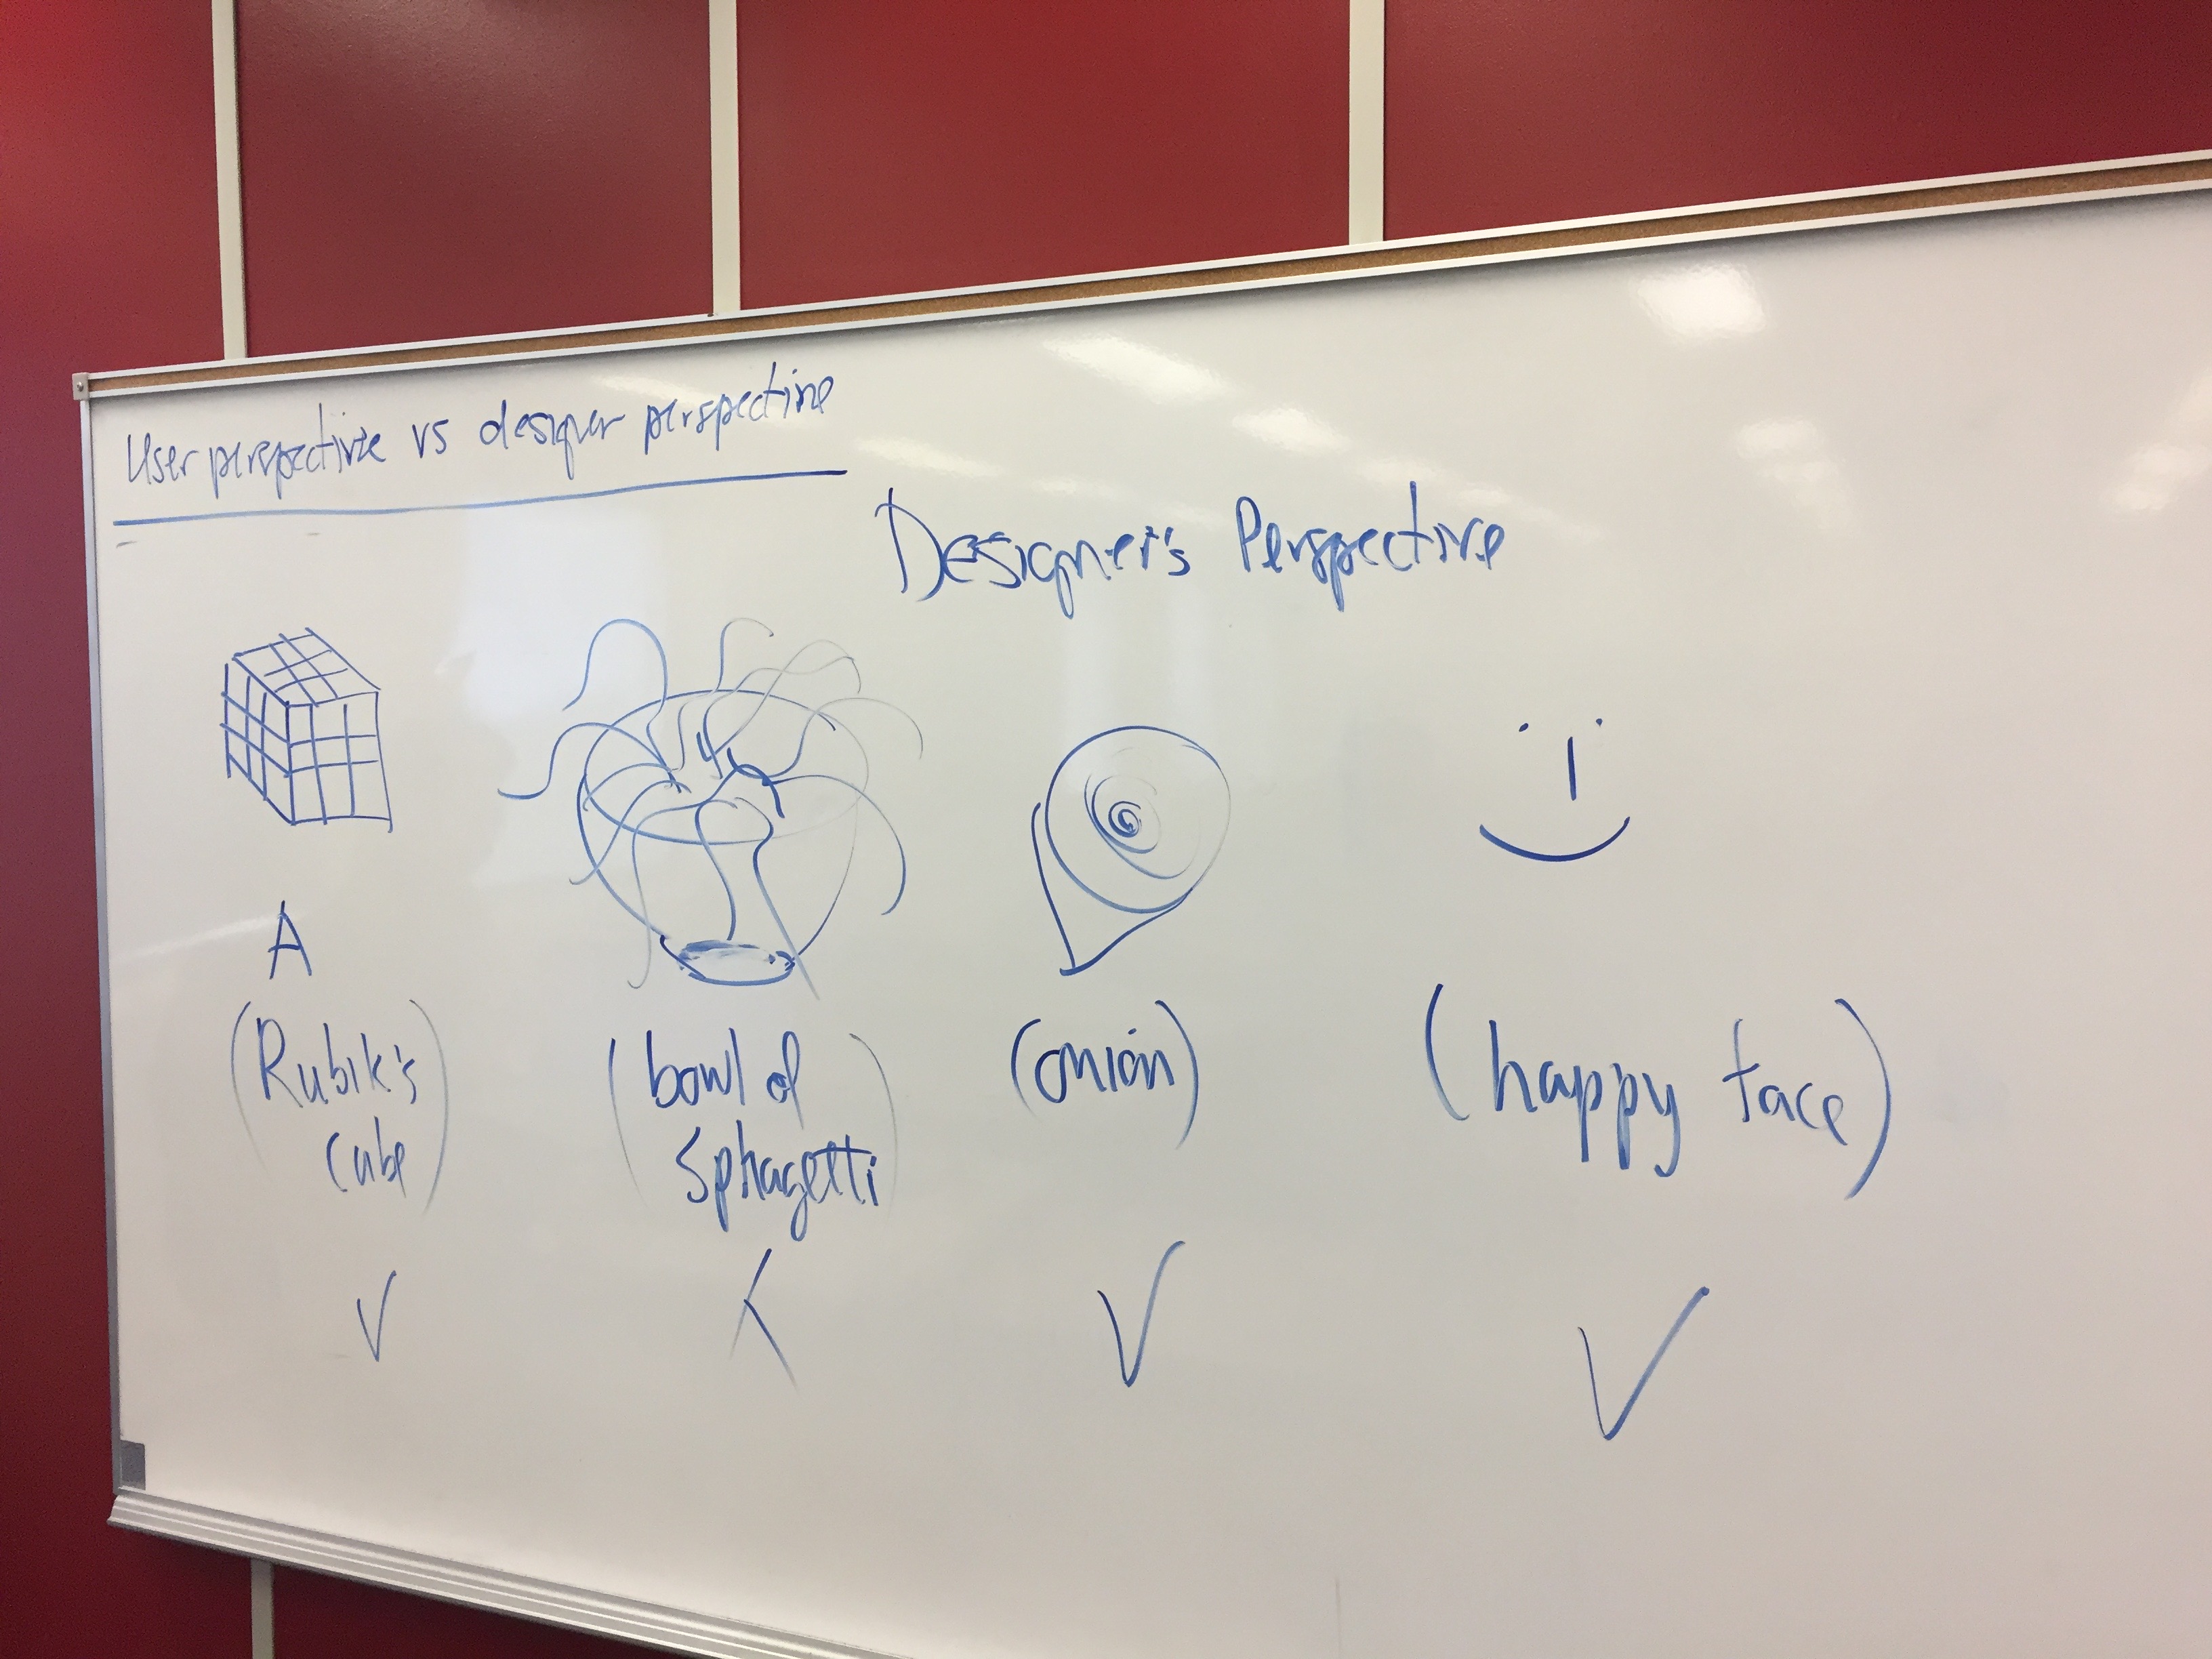 User perspective vs designer perspective
Designer's Perspective
A
(Rubik's
cube)
(bowl of
Sphagetti)
(onion)
(happy face)